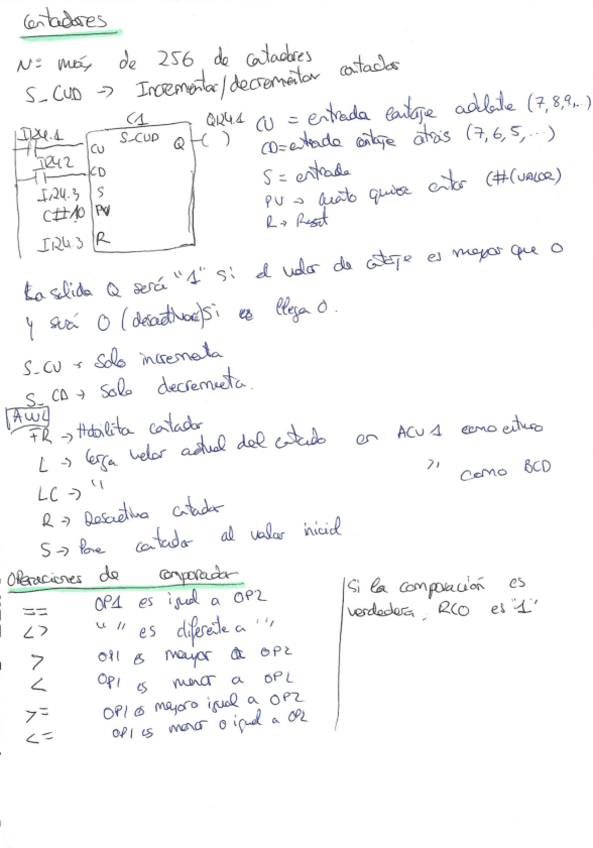 Contadores
N = máx de 256 de contadores
S_CUD → Incrementar/decrementar contador
C1
I124.1
S_CUD
Q124.1
CU
Q
( )
CU = entrada contaje adelante (7,8,9,..)
I124.2
CD
CD = entrada contaje atrás (7,6,5,...)
I124.3
S
S = entrada
C##10
PV
PV → cuanto quiere contar (#(VALOR)
I124.3
R
R → Reset
La salida Q será "1" si el valor de contaje es mayor que 0
y será 0 (desactivar) si llega 0.
S_CU → Solo incrementa
S_CD → Solo decrementa.
AWL
FR → Habilita contador
L → Carga valor actual del contador en ACU1 como entero
LC → " " como BCD
R → Desactiva contador
S → Pone contador al valor inicial
Operaciones de comparador
== OP1 es igual a OP2
<> " " es diferente a " "
> OP1 es mayor a OP2
< OP1 es menor a OP2
>= OP1 es mayor o igual a OP2
<= OP1 es menor o igual a OP2
Si la comparación es
verdadera, RCO es "1"